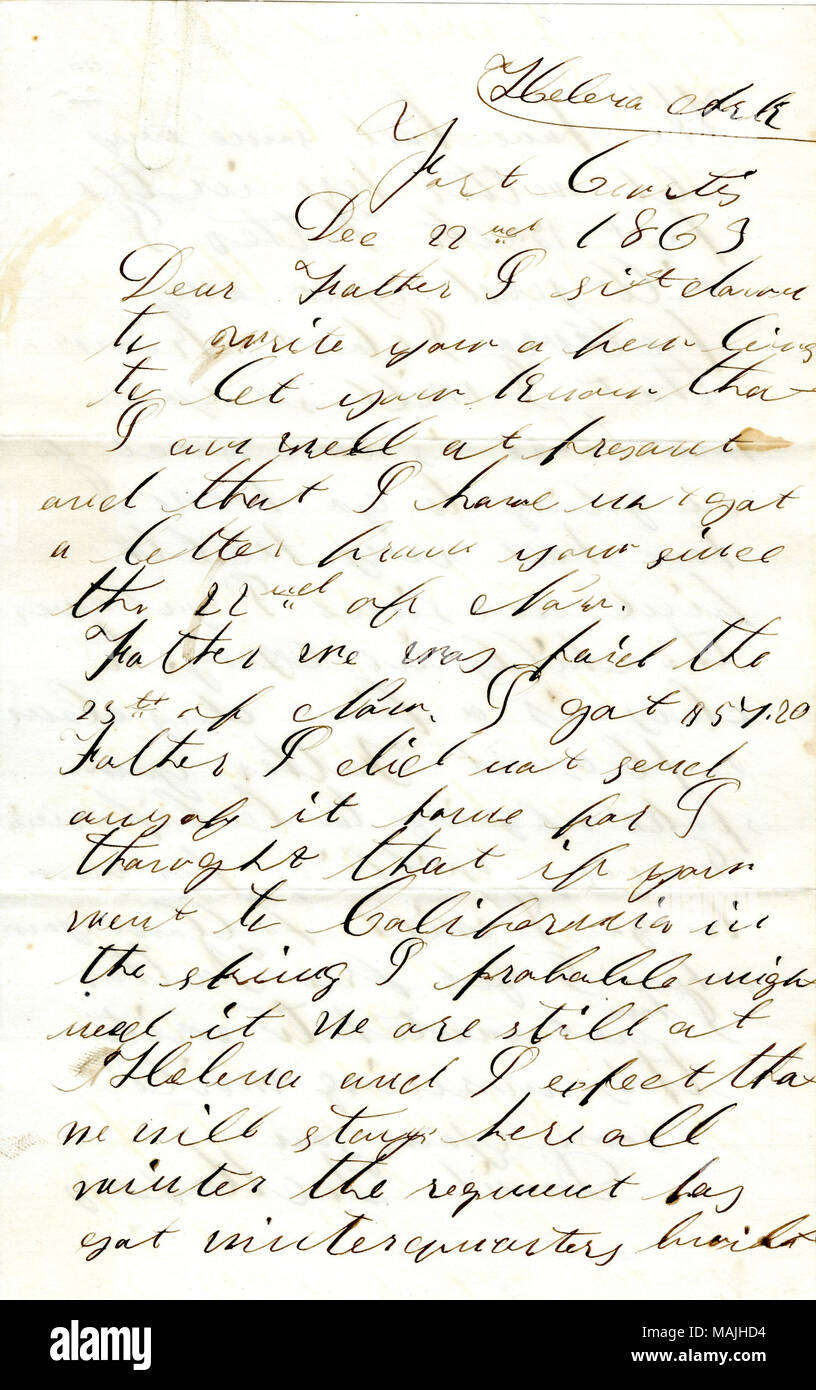 Helena Ark
Fort Curtis
Dec 22nd 1863
Dear Father I sit down
to write you a few lins
to let you know that
I am well at presant
and that I have not got
a letter from you since
the 22nd of Nov.
Father we was paid the
25th of Nov. I got $57.20
Father I did not send
anyof it home for I
thought that if you
went to California in
the spring I probable migh
need it We are still at
Helena and I expect tha
we will stay here all
winter the regment has
got winterquarters built
alamy
Image ID: MAJHD4
www.alamy.com